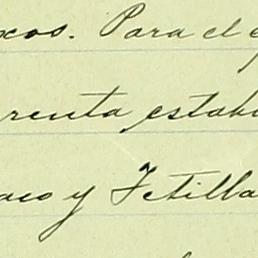 xos. Para el
renta, estab
aco y Tetilla